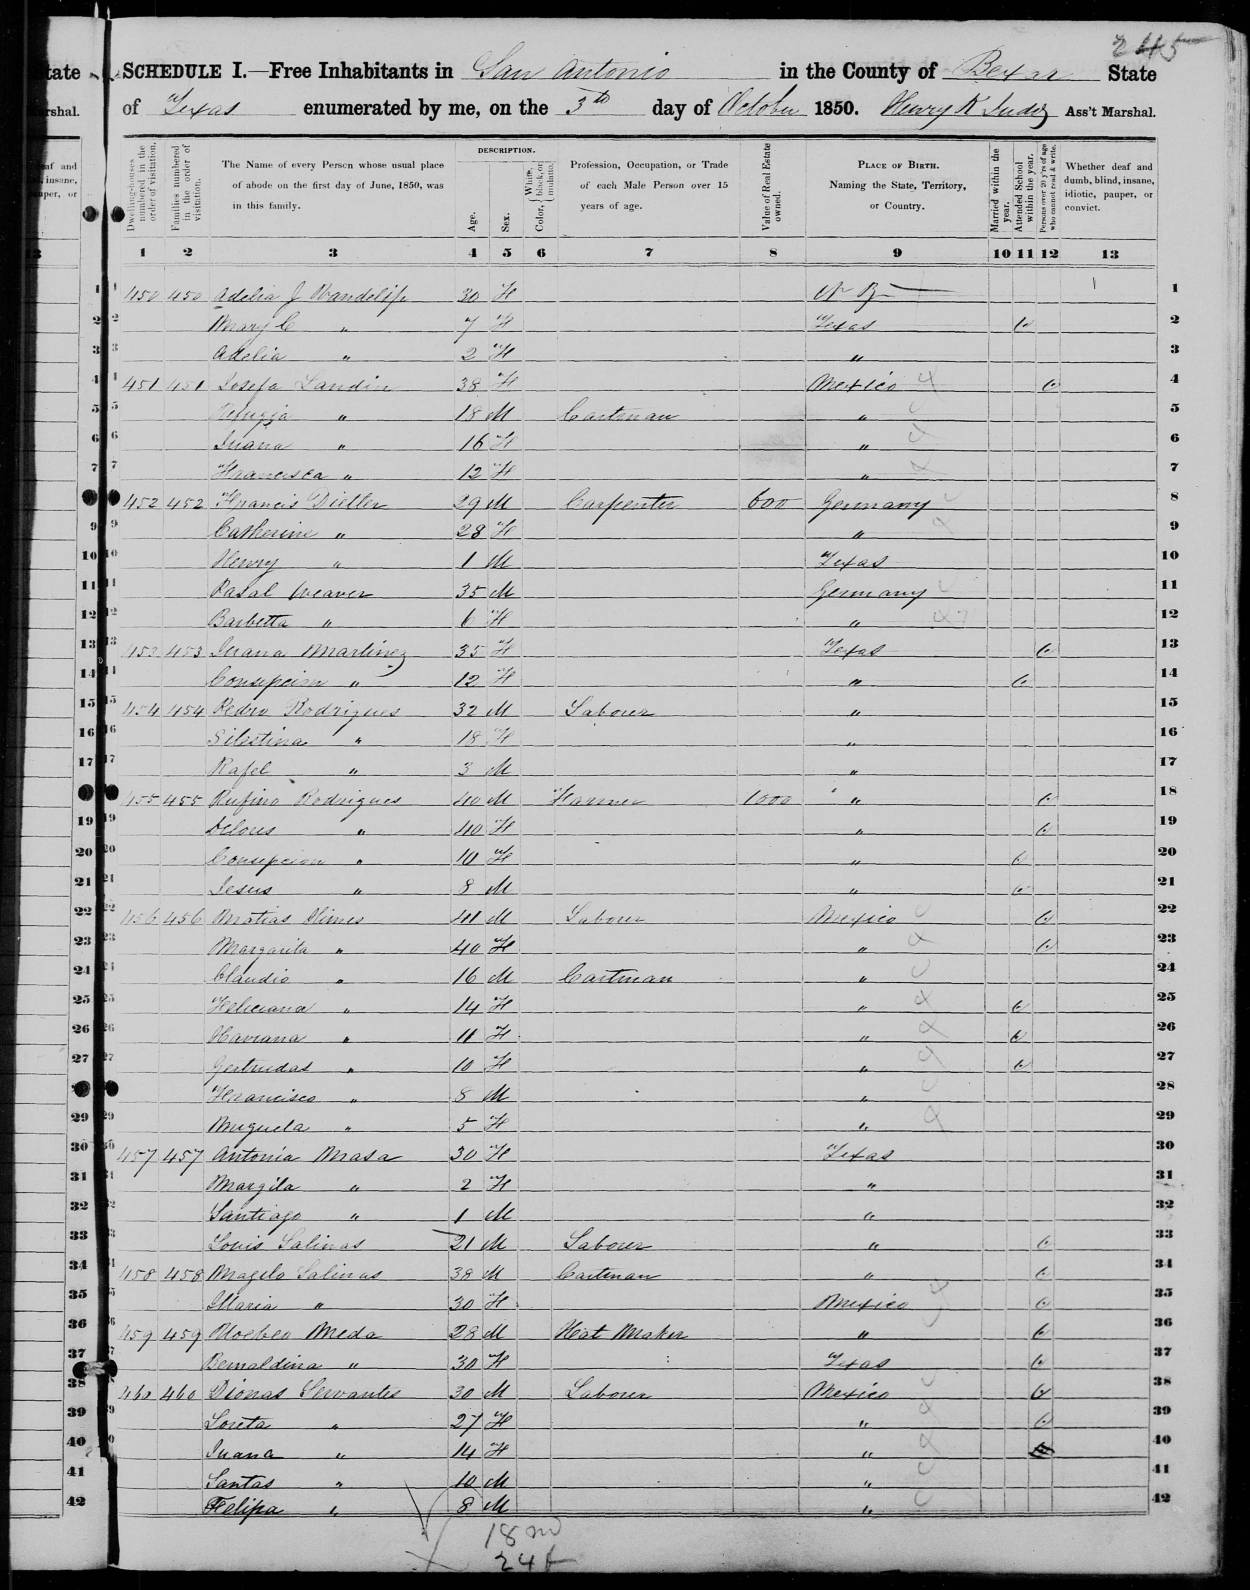 245
SCHEDULE I.—Free Inhabitants in San Antonio in the County of Bexar State
of Texas enumerated by me, on the 3th day of October 1850. Henry K Ass't Marshal.
Dwelling-houses numbered in the order of visitation.
Families numbered in the order of visitation.
The Name of every Person whose usual place of abode on the first day of June, 1850, was in this family.
DESCRIPTION.
Age.
Sex.
Color, White, black, or mulatto.
Profession, Occupation, or Trade of each Male Person over 15 years of age.
Value of Real Estate owned.
PLACE OF BIRTH. Naming the State, Territory, or Country.
Married within the year.
Attended School within the year.
Persons over 20 y'rs of age who cannot read & write.
Whether deaf and dumb, blind, insane, idiotic, pauper, or convict.
1 2 3 4 5 6 7 8 9 10 11 12 13
1 450 450 Adelia J 30 F 1
2 Mary C " 7 F Texas 2
3 Adelia " 2 F " 3
4 451 451 Josefa Landin 38 F Mexico 4
5 " 18 M Cartman " 5
6 Juana " 16 F " 6
7 Francisca " 12 F " 7
8 452 452 Francis Dieller 29 M Carpenter 600 Germany 8
9 Catherine " 28 F " 9
10 Henry " 1 M Texas 10
11 Rasal Weaver 35 M Germany 11
12 Barbetta " 6 F " 12
13 453 453 Juana Martinez 35 F Texas 13
14 Consepcion " 12 F " 14
15 454 454 Pedro Rodrigues 32 M Laborer " 15
16 Silistina " 18 F " 16
17 Rafel " 3 M " 17
18 455 455 Rufino Rodrigues 40 M Farmer 1000 " 18
19 Delores " 40 F " 19
20 Consepcion " 10 F " 20
21 Jesus " 8 M " 21
22 456 456 Matias 41 M Laborer Mexico 22
23 Margarita " 40 F " 23
24 Claudio " 16 M Cartman " 24
25 Feliciana " 14 F " 25
26 " 11 F " 26
27 Gertrudas " 10 F " 27
28 Francisco " 8 M " 28
29 Miguela " 5 F " 29
30 457 457 Antonia Masa 30 F Texas 30
31 Margila " 2 F " 31
32 Santiago " 1 M " 32
33 Louis Salinas 21 M Laborer " 33
34 458 458 Magilo Salinas 38 M Cartman " 34
35 Maria " 30 F Mexico 35
36 459 459 Meda 28 M Hat Maker " 36
37 Bernaldina " 30 F Texas 37
38 460 460 Dionas Servantes 30 M Laborer Mexico 38
39 Loreta " 27 F " 39
40 Juana " 14 F " 40
41 Santas " 10 M " 41
42 Felipa " 8 M " 42
18 m
24 f